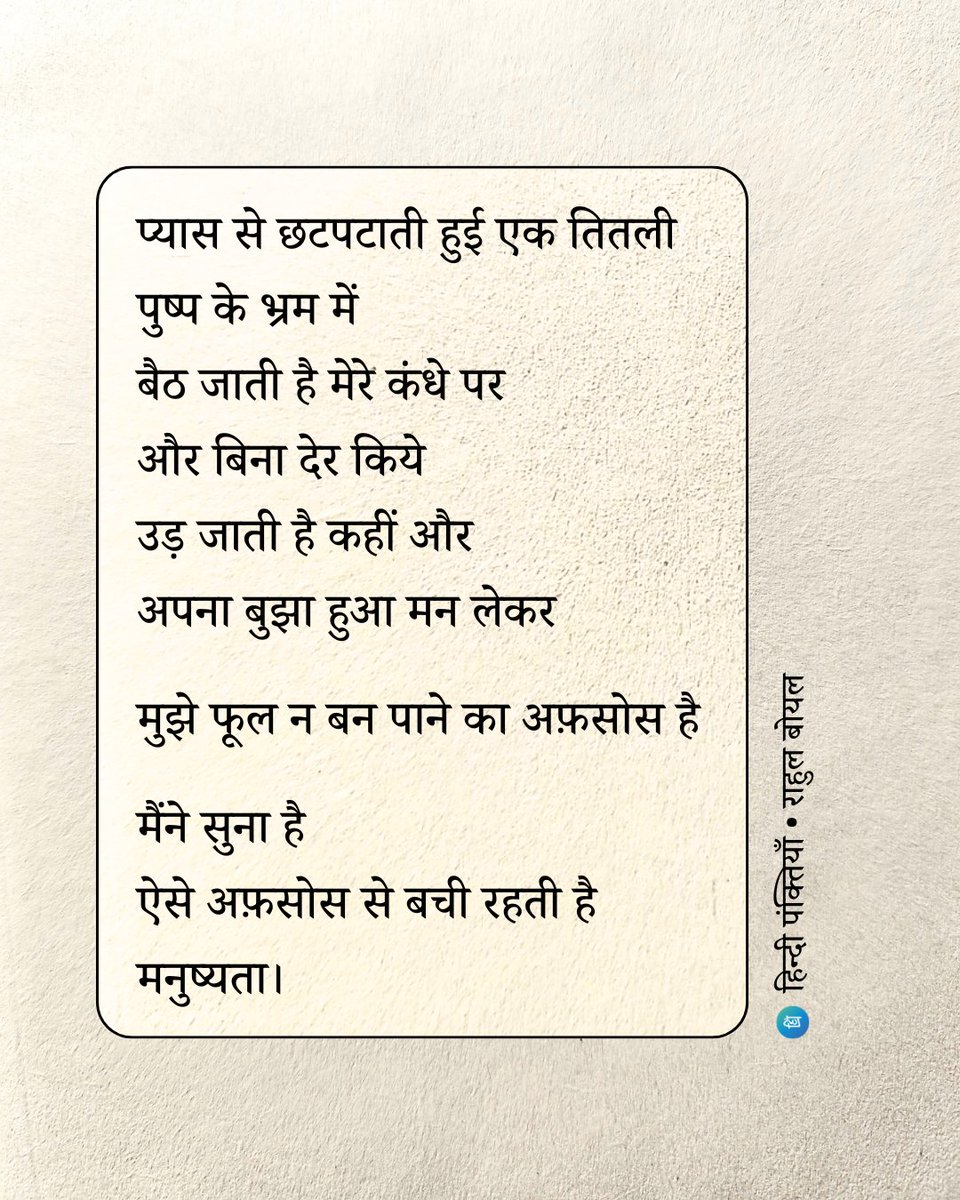 प्यास से छटपटाती हुई एक तितली
पुष्प के भ्रम में
बैठ जाती है मेरे कंधे पर
और बिना देर किये
उड़ जाती है कहीं और
अपना बुझा हुआ मन लेकर
मुझे फूल न बन पाने का अफ़सोस है
मैंने सुना है
ऐसे अफ़सोस से बची रहती है
मनुष्यता।
हिन्दी पंक्तियाँ • राहुल बोयल